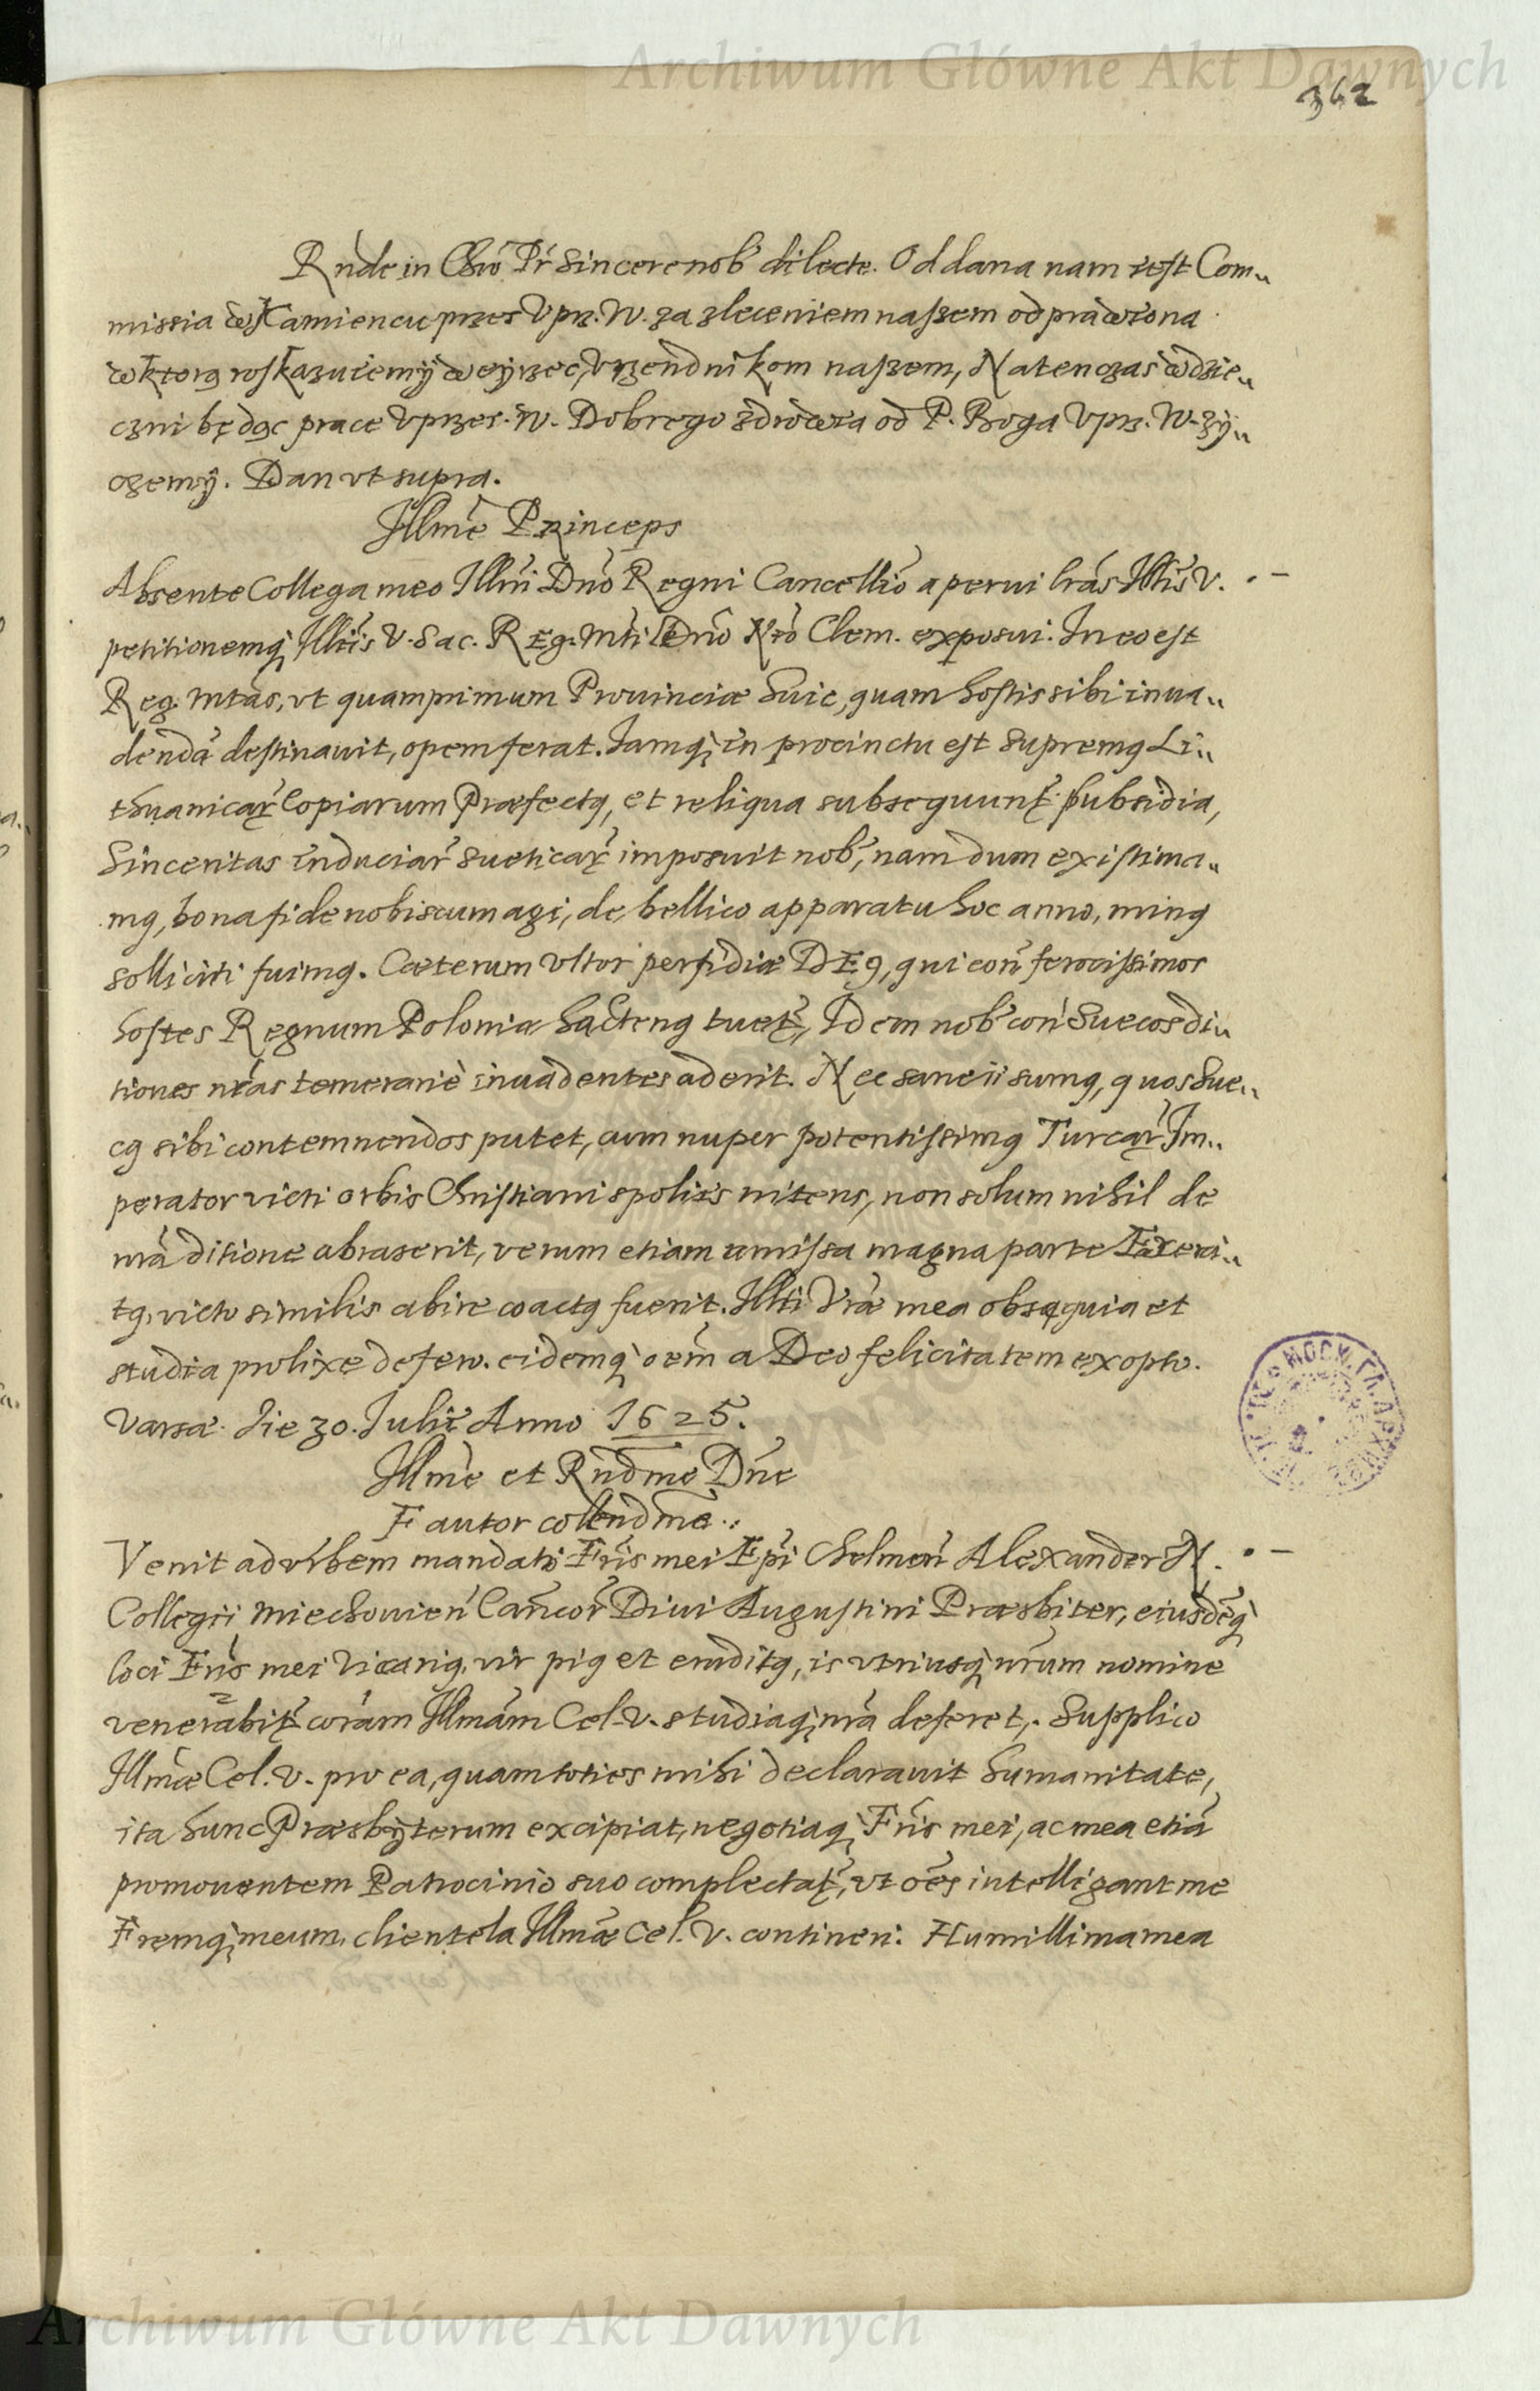 Archiwum Główne Akt Dawnych
362
Rnde in Chro Pr Sincere nob dilecte. Oddana nam iest Com„
missia w Kamiencu przes Vprz. W. za zleceniem naszem odprawiona
w ktorą roskazuiemy weyrzec, Vrzendnikom naszem, Natenczas wdzie„
czni będąc prace Vprzes. W. Dobrego zdrowia od P. Boga Vprz. W. zy„
czemy. Dan vt supra.
Illme Princeps
Absente Collega meo Illmi Dno Regni Cancellio aperui lras Illtis V.
petitionemq Illtis V. Sac. Reg. Mti Dno Nro Clem. exposui. In eo est
Reg. Mtas, vt quamprimum Prouinciæ huic, quam hostis sibi inua„
denda destinauit, opem ferat. Jamq in procinctu est Supremq Li„
thuanicar Copiarum Præfectq, et reliqua subsequunt subsidia,
Sinceritas induciar Sueticar imposuit nob, nam dum existima„
mq, bona fide nobiscum agi, de bellico apparatu hoc anno, minq
solliciti fuimq. Cæterum vltor perfidiæ DEq, qui con ferocissimos
hostes Regnum Poloniæ hactenq tuet, Idem nob con Suecos di„
tiones nras temerariè inuadentes aderit. Nec sane ii sumq, quos Sue„
cq sibi contemnendos putet, cum nuper potentissimq Turcar Im„
perator victi orbis Christiani spoliis nitens, non solum nihil de
nra ditione abraserit, verum etiam amissa magna parte Exerci„
tq, victo similis abire coactq fuerit. Illti Vræ mea obsequia et
studia prolixe defero. eidemq oem a Deo felicitatem exopto.
Varsæ. die 30. Julii Anno 1625.
Illme et Rndme Dne
Fautor colendme.
Venit ad Vrbem mandato Fris mei Epi Chelmen Alexander N.
Collegii Miechouien Cancor Diui Augustini Præsbiter, eiusdeq
loci Fris mei Vicariq, vir piq et eruditq, is vtriusq nrum nomine
venerabit coram Illmam Cel. V. studiaq nra deferet,. Supplico
Illmæ Cel. V. pro ea, quam toties mihi declarauit humanitate,
ita hunc Præsbyterum excipiat, negotiaq Fris mei, ac mea etia
promouentem Patrocinio suo complectat, vt oes intelligant me
Fremq meum, clientela Illmæ Cel. V. contineri. Humillima mea
Archiwum Główne Akt Dawnych